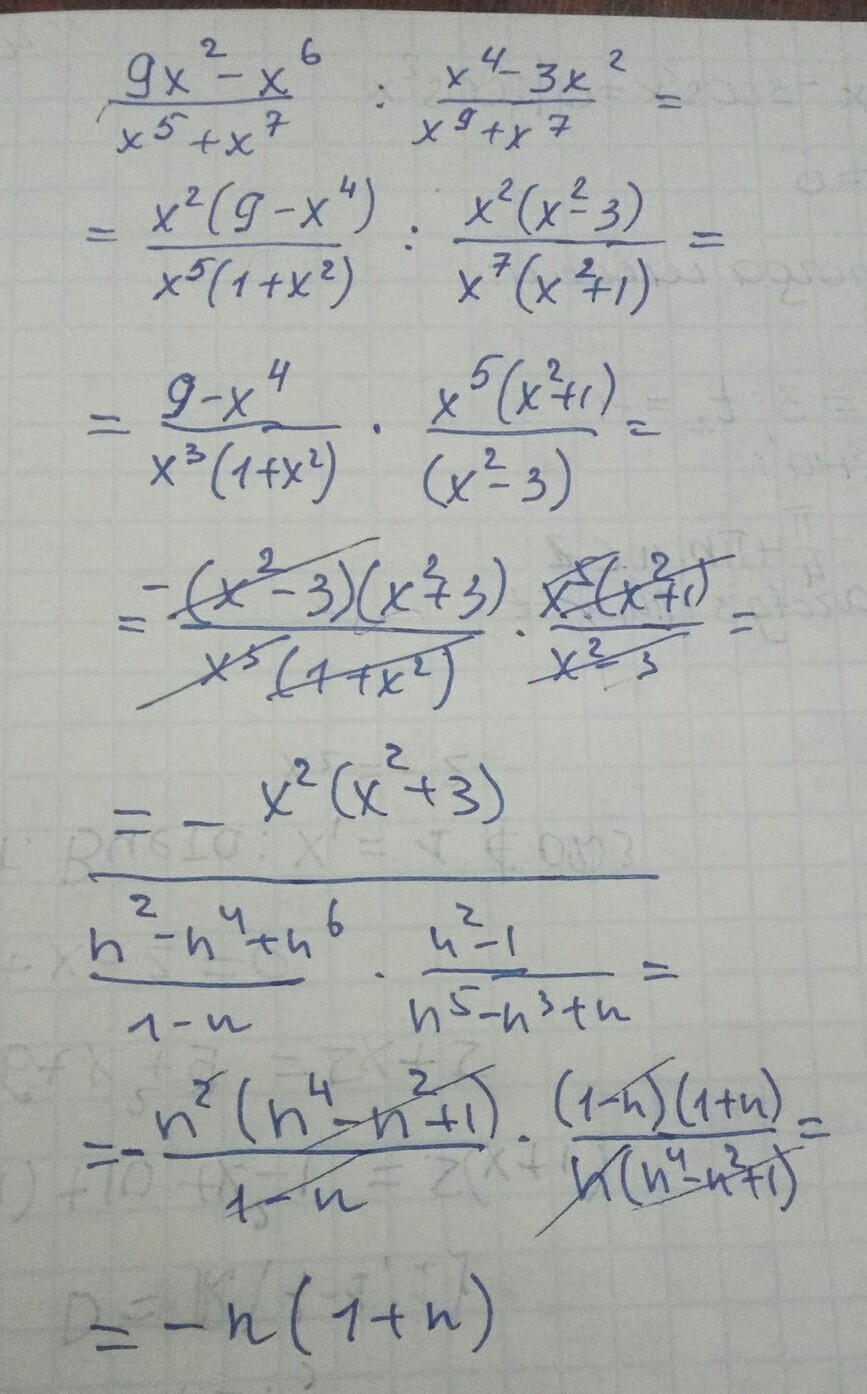 (9x² - x⁶)/(x⁵ + x⁷) : (x⁴ - 3x²)/(x⁹ + x⁷) =
= x²(9 - x⁴)/x⁵(1 + x²) : x²(x² - 3)/x⁷(x² + 1) =
= (9 - x⁴)/x³(1 + x²) · x⁵(x² + 1)/(x² - 3) =
= -(x² - 3)(x² + 3)/x³(1 + x²) · x⁵(x² + 1)/(x² - 3) =
= - x²(x² + 3)
(n² - n⁴ + n⁶)/(1 - n) · (n² - 1)/(n⁵ - n³ + n) =
= - n²(n⁴ - n² + 1)/(1 - n) · (1 - n)(1 + n)/n(n⁴ - n² + 1) =
= - n(1 + n)